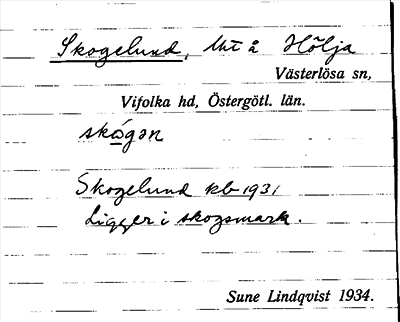 Skogelund, lht å Hölja
Västerlösa sn,
Vifolka hd, Östergötl. län.
skó̲gən
Skogelund kb 1931
Ligger i skogsmark.
Sune Lindqvist 1934.